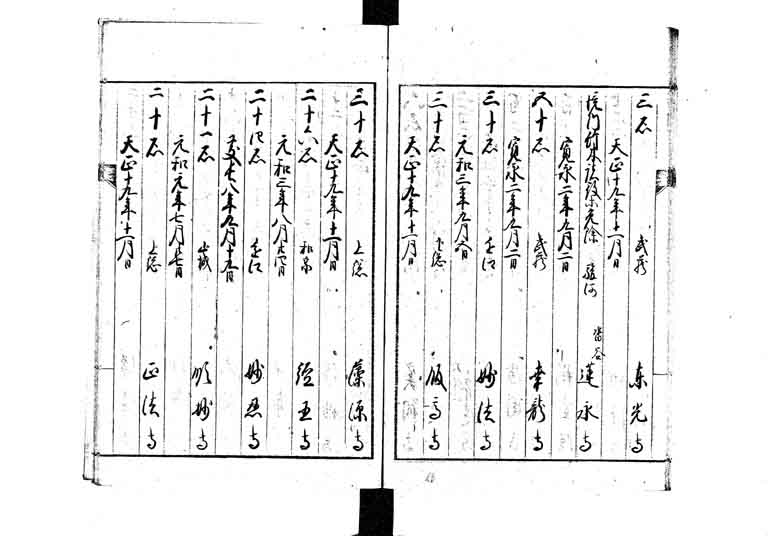 三石 武蔵 東光寺
天正十九年十一月日
境内竹木諸役等免除 駿河 沓谷 蓮永寺
寛永二年九月二日
五十石 武蔵 幸龍寺
寛永二年九月二日
三十石 遠江 妙法寺
元和三年九月六日
三十石 下総 飯高寺
天正十九年十一月日
三十石 上総 藻源寺
天正十九年十一月日
二十六石 和泉 経王寺
元和三年八月廿八日
二十四石 遠江 妙恩寺
慶長八年九月十五日
二十一石 山城 頂妙寺
元和元年七月廿七日
二十石 上総 正法寺
天正十九年十一月日